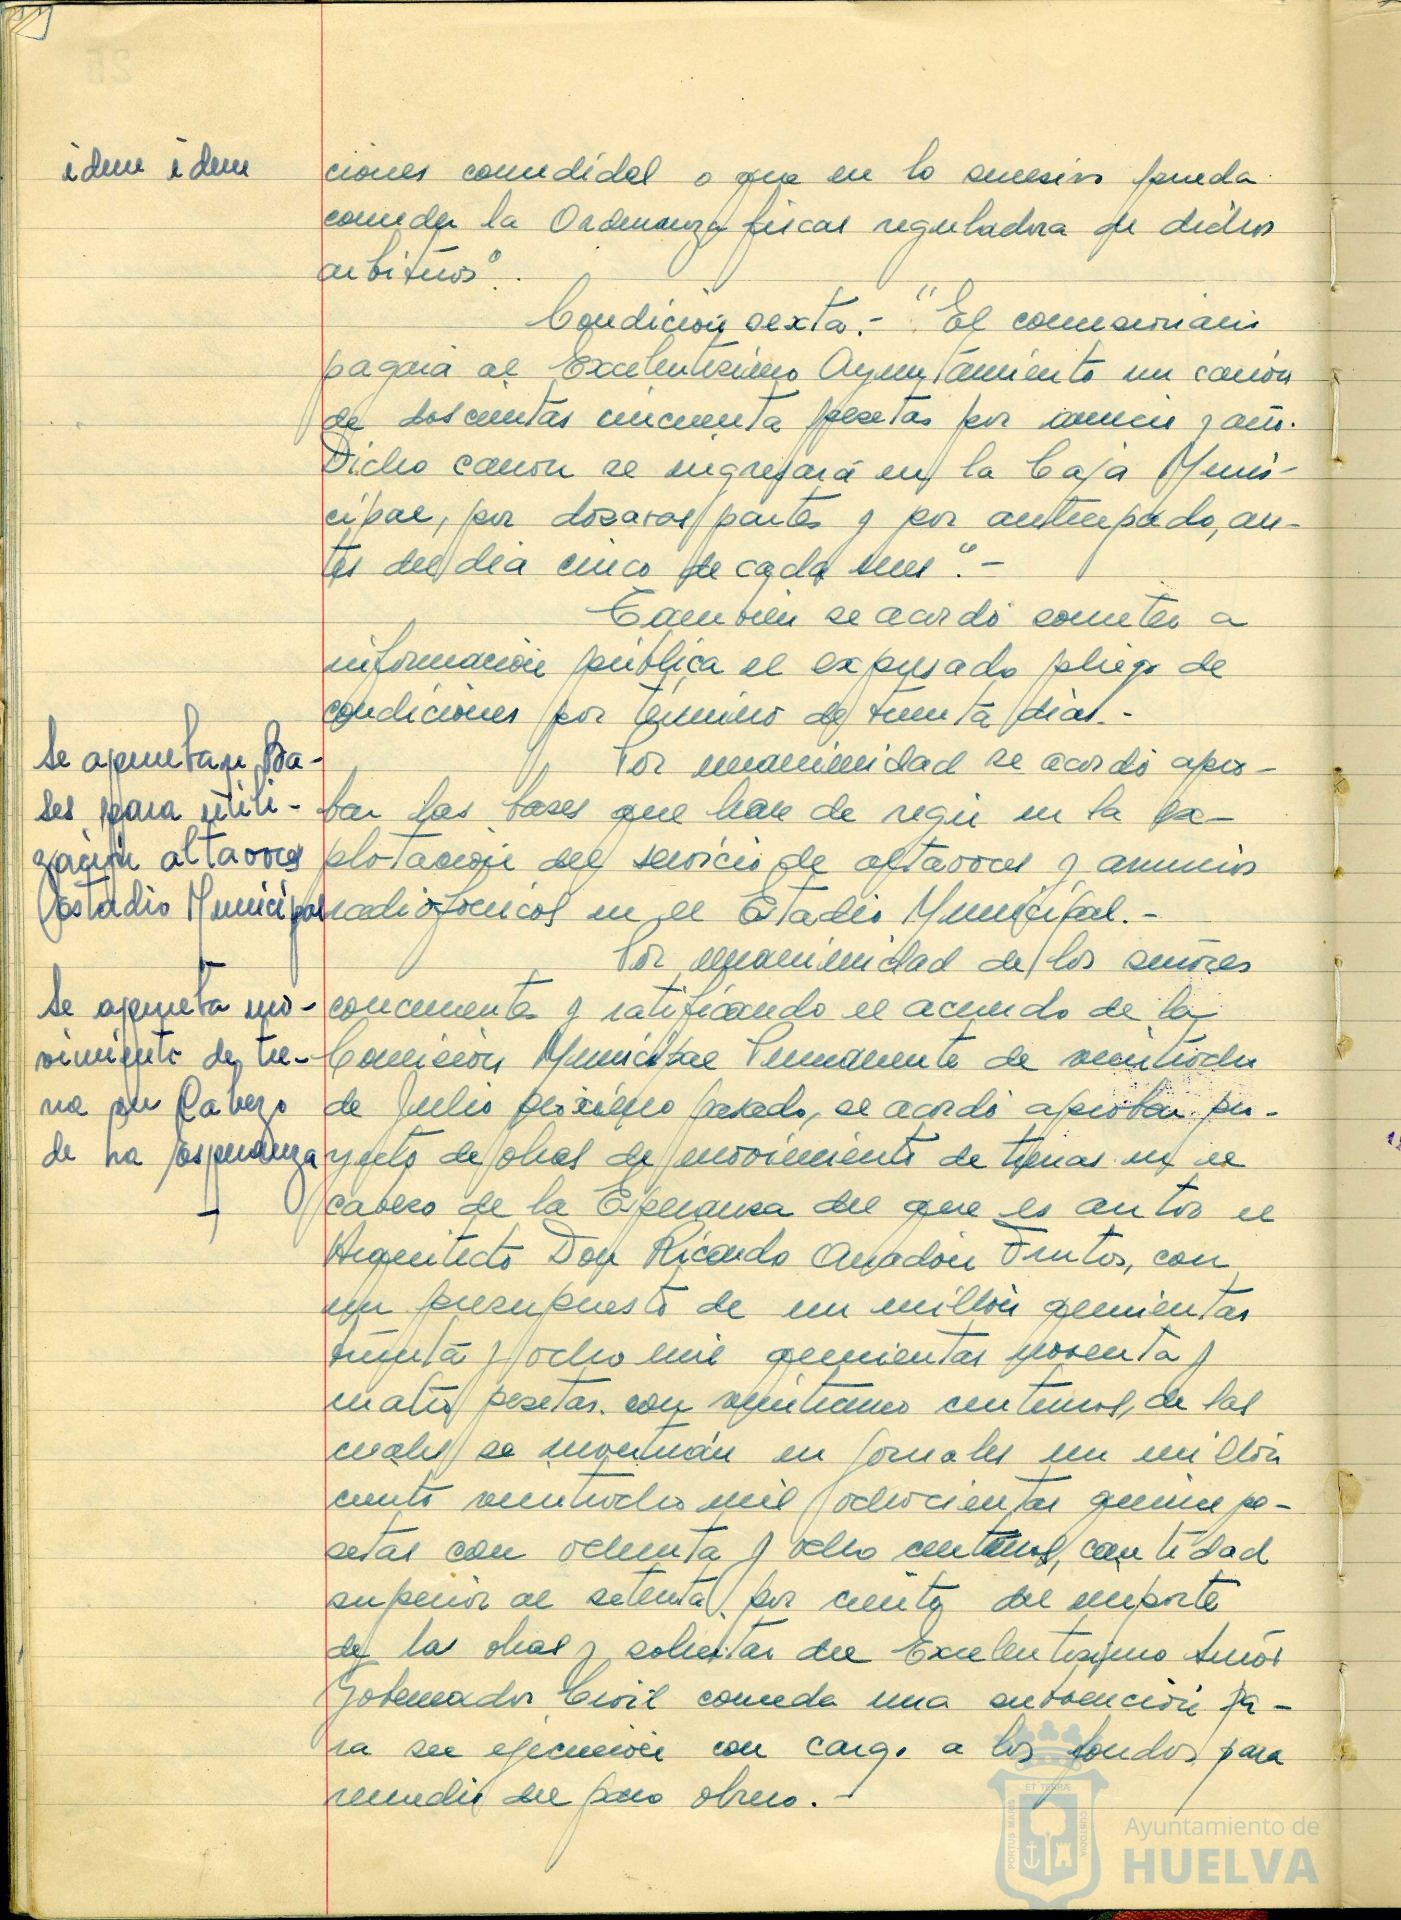 idem idem
ciones concedidas o que en lo sucesivo pueda
conceder la Ordenanza fiscal reguladora de dichos
arbitrios".
Condición sexta.- "El concesionario
pagará al Excelentísimo Ayuntamiento un canon
de doscientas cincuenta pesetas por anuncio y año.
Dicho canon se ingresará en la Caja Muni-
cipal, por dozavas partes y por anticipado, an-
tes del dia cinco de cada mes".-
Tambien se acordó someter a
información pública el expresado pliego de
condiciones por término de treinta dias.-
Se aprueban Ba-
ses para utili-
zación altavoces
Estadio Municipal
Por unanimidad se acordó apro-
bar las bases que han de regir en la ex-
plotación del servicio de altavoces y anuncios
radiofonicos en el Estadio Municipal.-
Se aprueba mo-
vimiento de tie-
rra en Cabezo
de la Esperanza
Por unanimidad de los señores
concurrentes y ratificando el acuerdo de la
Comisión Municipal Permanente de veintiocho
de Julio próximo pasado, se acordó aprobar pro-
yecto de obras de movimiento de tierras en el
cabezo de la Esperanza del que es autor el
Arquitecto Don Ricardo Anadón Frutos, con
un presupuesto de un millón quinientas
treinta y ocho mil quinientas noventa y
cuatro pesetas con veintiuno centimos, de las
cuales se invertirán en jornales un millón
ciento veintiocho mil ochocientas quince pe-
setas con ochenta y ocho centimos, cantidad
superior al setenta por ciento del importe
de las obras y solicitar del Excelentísimo Señor
Gobernador Civil conceda una subvención pa-
ra su ejecución con cargo a los fondos para
remedio del paro obrero.-
ET TERRÆ
PORTUS MARIS
CUSTODIA
Ayuntamiento de
HUELVA